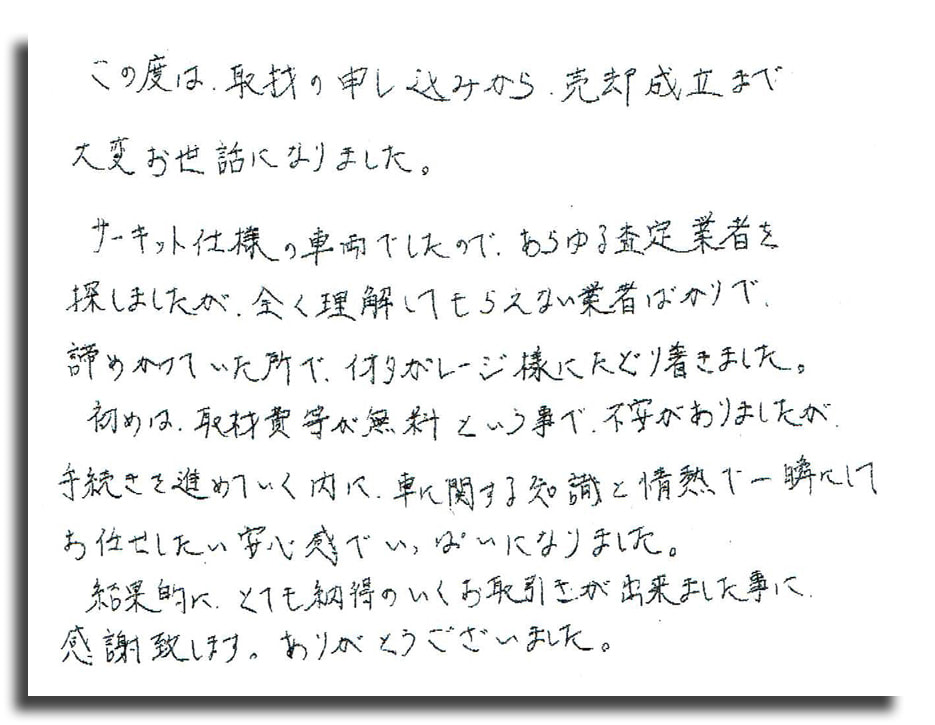 この度は、取材の申し込みから、売却成立まで
大変お世話になりました。
サーキット仕様の車両でしたので、あらゆる査定業者を
探しましたが、全く理解してもらえない業者ばかりで、
諦めかけていた所で、イオタガレージ様にたどり着きました。
初めは、取材費等が無料という事で、不安がありましたが、
手続きを進めていく内に、車に関する知識と情熱で一瞬にして
お任せしたい安心感でいっぱいになりました。
結果的に、とても納得のいくお取引きが出来ました事に、
感謝致します。ありがとうございました。